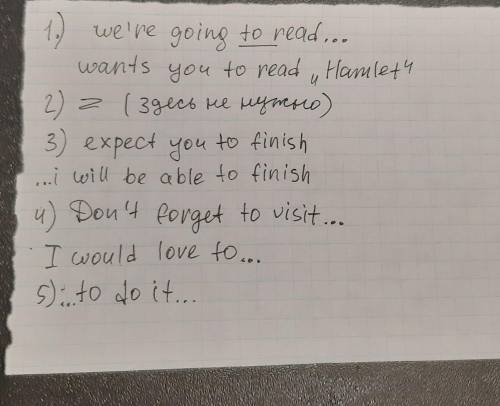 1.) we're going to read...
wants you to read „Hamlet"
2) = (здесь не нужно)
3) expect you to finish
...i will be able to finish
4) Don't forget to visit...
I would love to...
5) ...to do it...